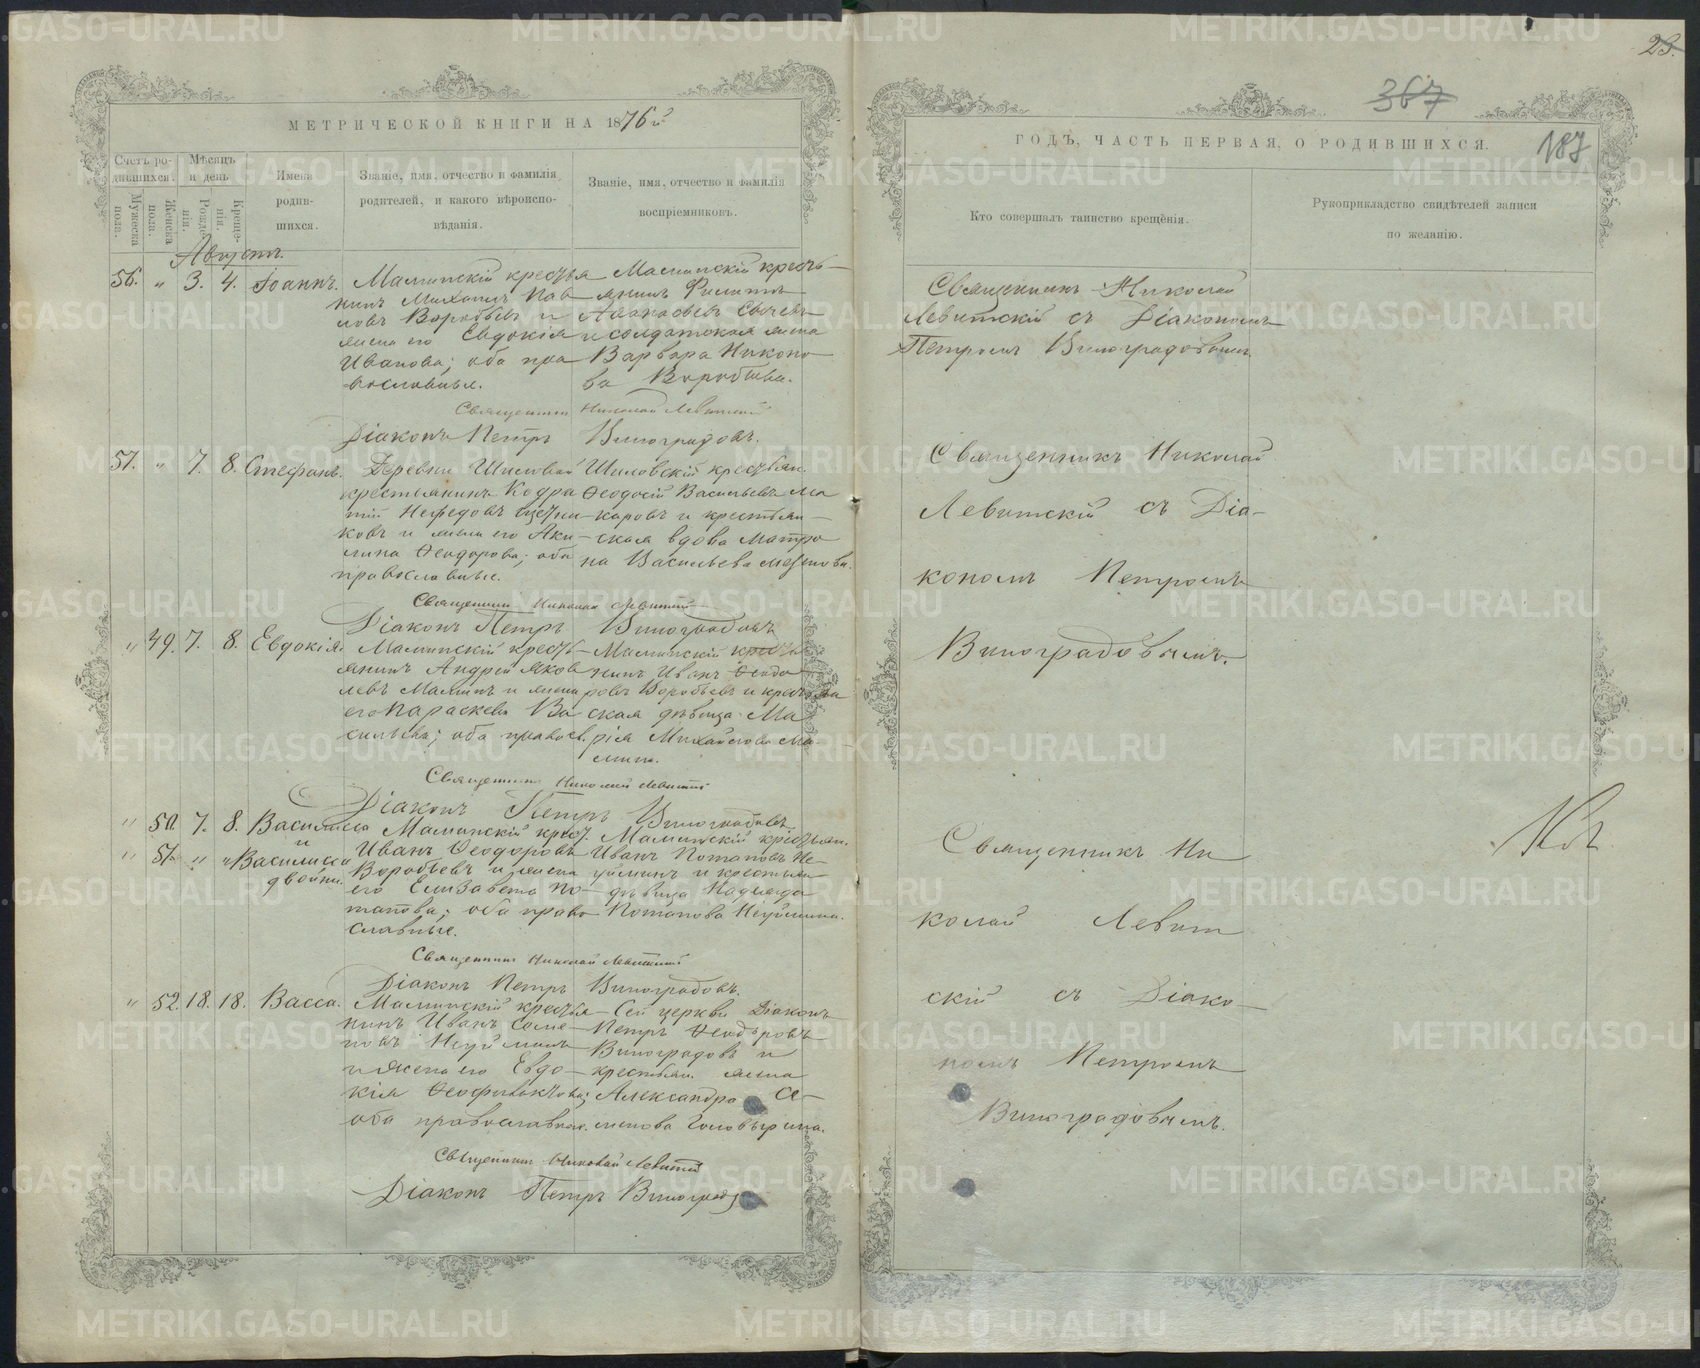 МЕТРИЧЕСКОЙ КНИГИ НА 1876й
Счетъ ро-
дившихся.
Мѣсяцъ
и день
Мужеска
пола.
Женска
пола.
Рожде-
нія.
Креще-
нія.
Имена
родив-
шихся.
Званіе, имя, отчество и фамилія
родителей, и какого вѣроиспо-
вѣданія.
Званіе, имя, отчество и фамилія
воспріемниковъ.
Августъ.
56. " 3. 4. Іоаннъ.
Маминскій крестья
нинъ Михаилъ Пав
ловъ Воробьевъ и
жена его Евдокія
Иванова; оба пра
вославные.
Маминскій кресть-
янинъ Филиппъ
Аѳанасьевъ
и солдатская жена
Варвара Никоно
ва Воробьева.
Священникъ Николай Левитскій
Діаконъ Петръ Виноградовъ.
57. " 7. 8. Стефанъ.
Деревни Шиловой
крестьянинъ Кодра
тій Нефедовъ
ковъ и жена его Аки-
лина Ѳеодорова; оба
православные.
Шиловскій крестьян.
Ѳеодосій Васильевъ Ма
каровъ и крестьян-
ская вдова Матро
на Васильева
Священникъ Николай Левитскій
Діаконъ Петръ Виноградовъ
" 49. 7. 8. Евдокія.
Маминскій кресть-
янинъ Андрей Яков
левъ Маминъ и жена
его Параскева Ва
сильева; оба правосл.
Маминскій крестья
нинъ Иванъ Ѳеодо
ровъ Воробьевъ и крестьян
ская дѣвица Ма
рія Михайлова Ма-
мина.
Священникъ Николай Левитскій
Діаконъ Петръ Виноградовъ.
" 50. 7. 8. Василисса
и
" 51. " " Василисса
двойни.
Маминскій крест.
Иванъ Ѳеодоровъ
Воробьевъ и жена
его Елизавета По-
тапова; оба право
славные.
Маминскій крестьян.
Иванъ Потаповъ Не-
уйминъ и крестьян
дѣвица Надежда
Потапова Неуймина.
Священникъ Николай Левитскій
Діаконъ Петръ Виноградовъ.
" 52. 18. 18. Васса.
Маминскій крестья-
нинъ Иванъ Семе-
новъ Неуйминъ
и жена его Евдо-
кія Ѳеофилактова;
оба православные.
Сей церкви Діаконъ
Петръ Ѳеодоровъ
Виноградовъ и
крестьян. жена
Александра Се-
менова Головырина.
Священникъ Николай Левитскій
Діаконъ Петръ Виноградовъ
23.
367
187
ГОДЪ, ЧАСТЬ ПЕРВАЯ, О РОДИВШИХСЯ.
Кто совершалъ таинство крещенія.
Рукоприкладство свидѣтелей записи
по желанію.
Священникъ Николай
Левитскій съ Діакономъ
Петромъ Виноградовымъ
Священникъ Николай
Левитскій съ Діа-
кономъ Петромъ
Виноградовымъ.
Священникъ Ни
колай Левит
скій съ Діако-
номъ Петромъ
Виноградовымъ.
METRIKI.GASO-URAL.RU